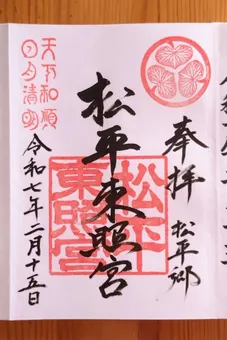 奉拝
松平郷
松平東照宮
松平東照宮
天下和順
日月清明
令和七年二月十五日